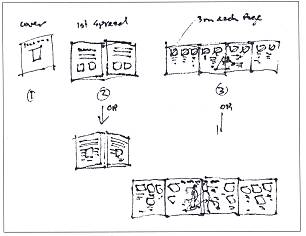 cover
1st Spread
3 on each Page
①
②
③
OR
OR